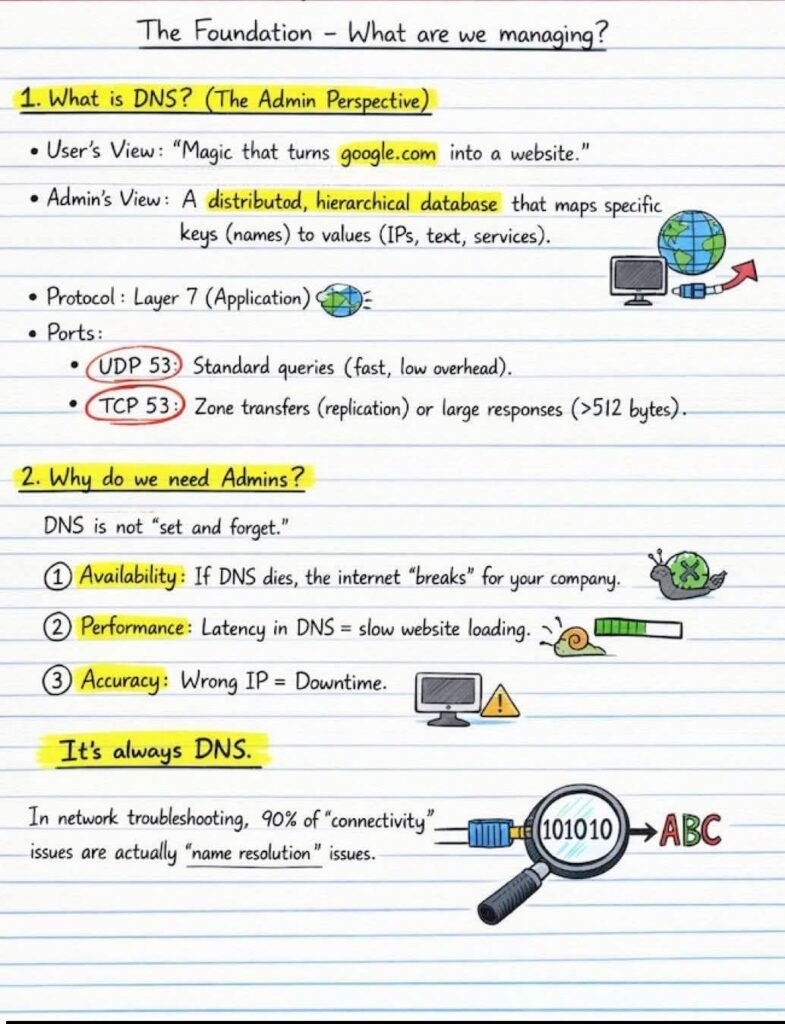 The Foundation – What are we managing?
1. What is DNS? (The Admin Perspective)
• User's View: "Magic that turns google.com into a website."
• Admin's View: A distributod, hierarchical database that maps specific
keys (names) to values (IPs, text, services).
• Protocol: Layer 7 (Application)
• Ports:
• UDP 53: Standard queries (fast, low overhead).
• TCP 53: Zone transfers (replication) or large responses (>512 bytes).
2. Why do we need Admins?
DNS is not "set and forget."
① Availability: If DNS dies, the internet "breaks" for your company.
② Performance: Latency in DNS = slow website loading.
③ Accuracy: Wrong IP = Downtime.
It's always DNS.
In network troubleshooting, 90% of "connectivity"
issues are actually "name resolution" issues.
101010
ABC